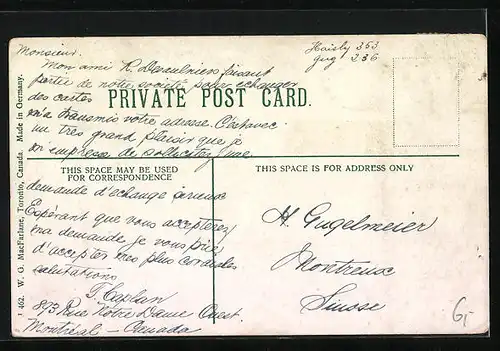 Monsieur.
Haisly 353
gug 236
Mon ami R. Desaulniers faisant
partie de notre société pour echanger
des cartes
PRIVATE POST CARD.
m'a transmis votre adresse. C'est avec
un très grand plaisir que je
m'empresse de solliciter une
THIS SPACE MAY BE USED
FOR CORRESPONDENCE
THIS SPACE IS FOR ADDRESS ONLY
demande d'echange
Espérant que vous accepterez
ma demande je vous prie
d'accepter mes plus cordiales
salutations
T. Caplan
893 Rue Notre Dame Ouest.
Montréal – Canada
H. Gugelmeier
Montreux
Suisse
6,-
1 462. W. G. MacFarlane, Toronto, Canada. Made in Germany.